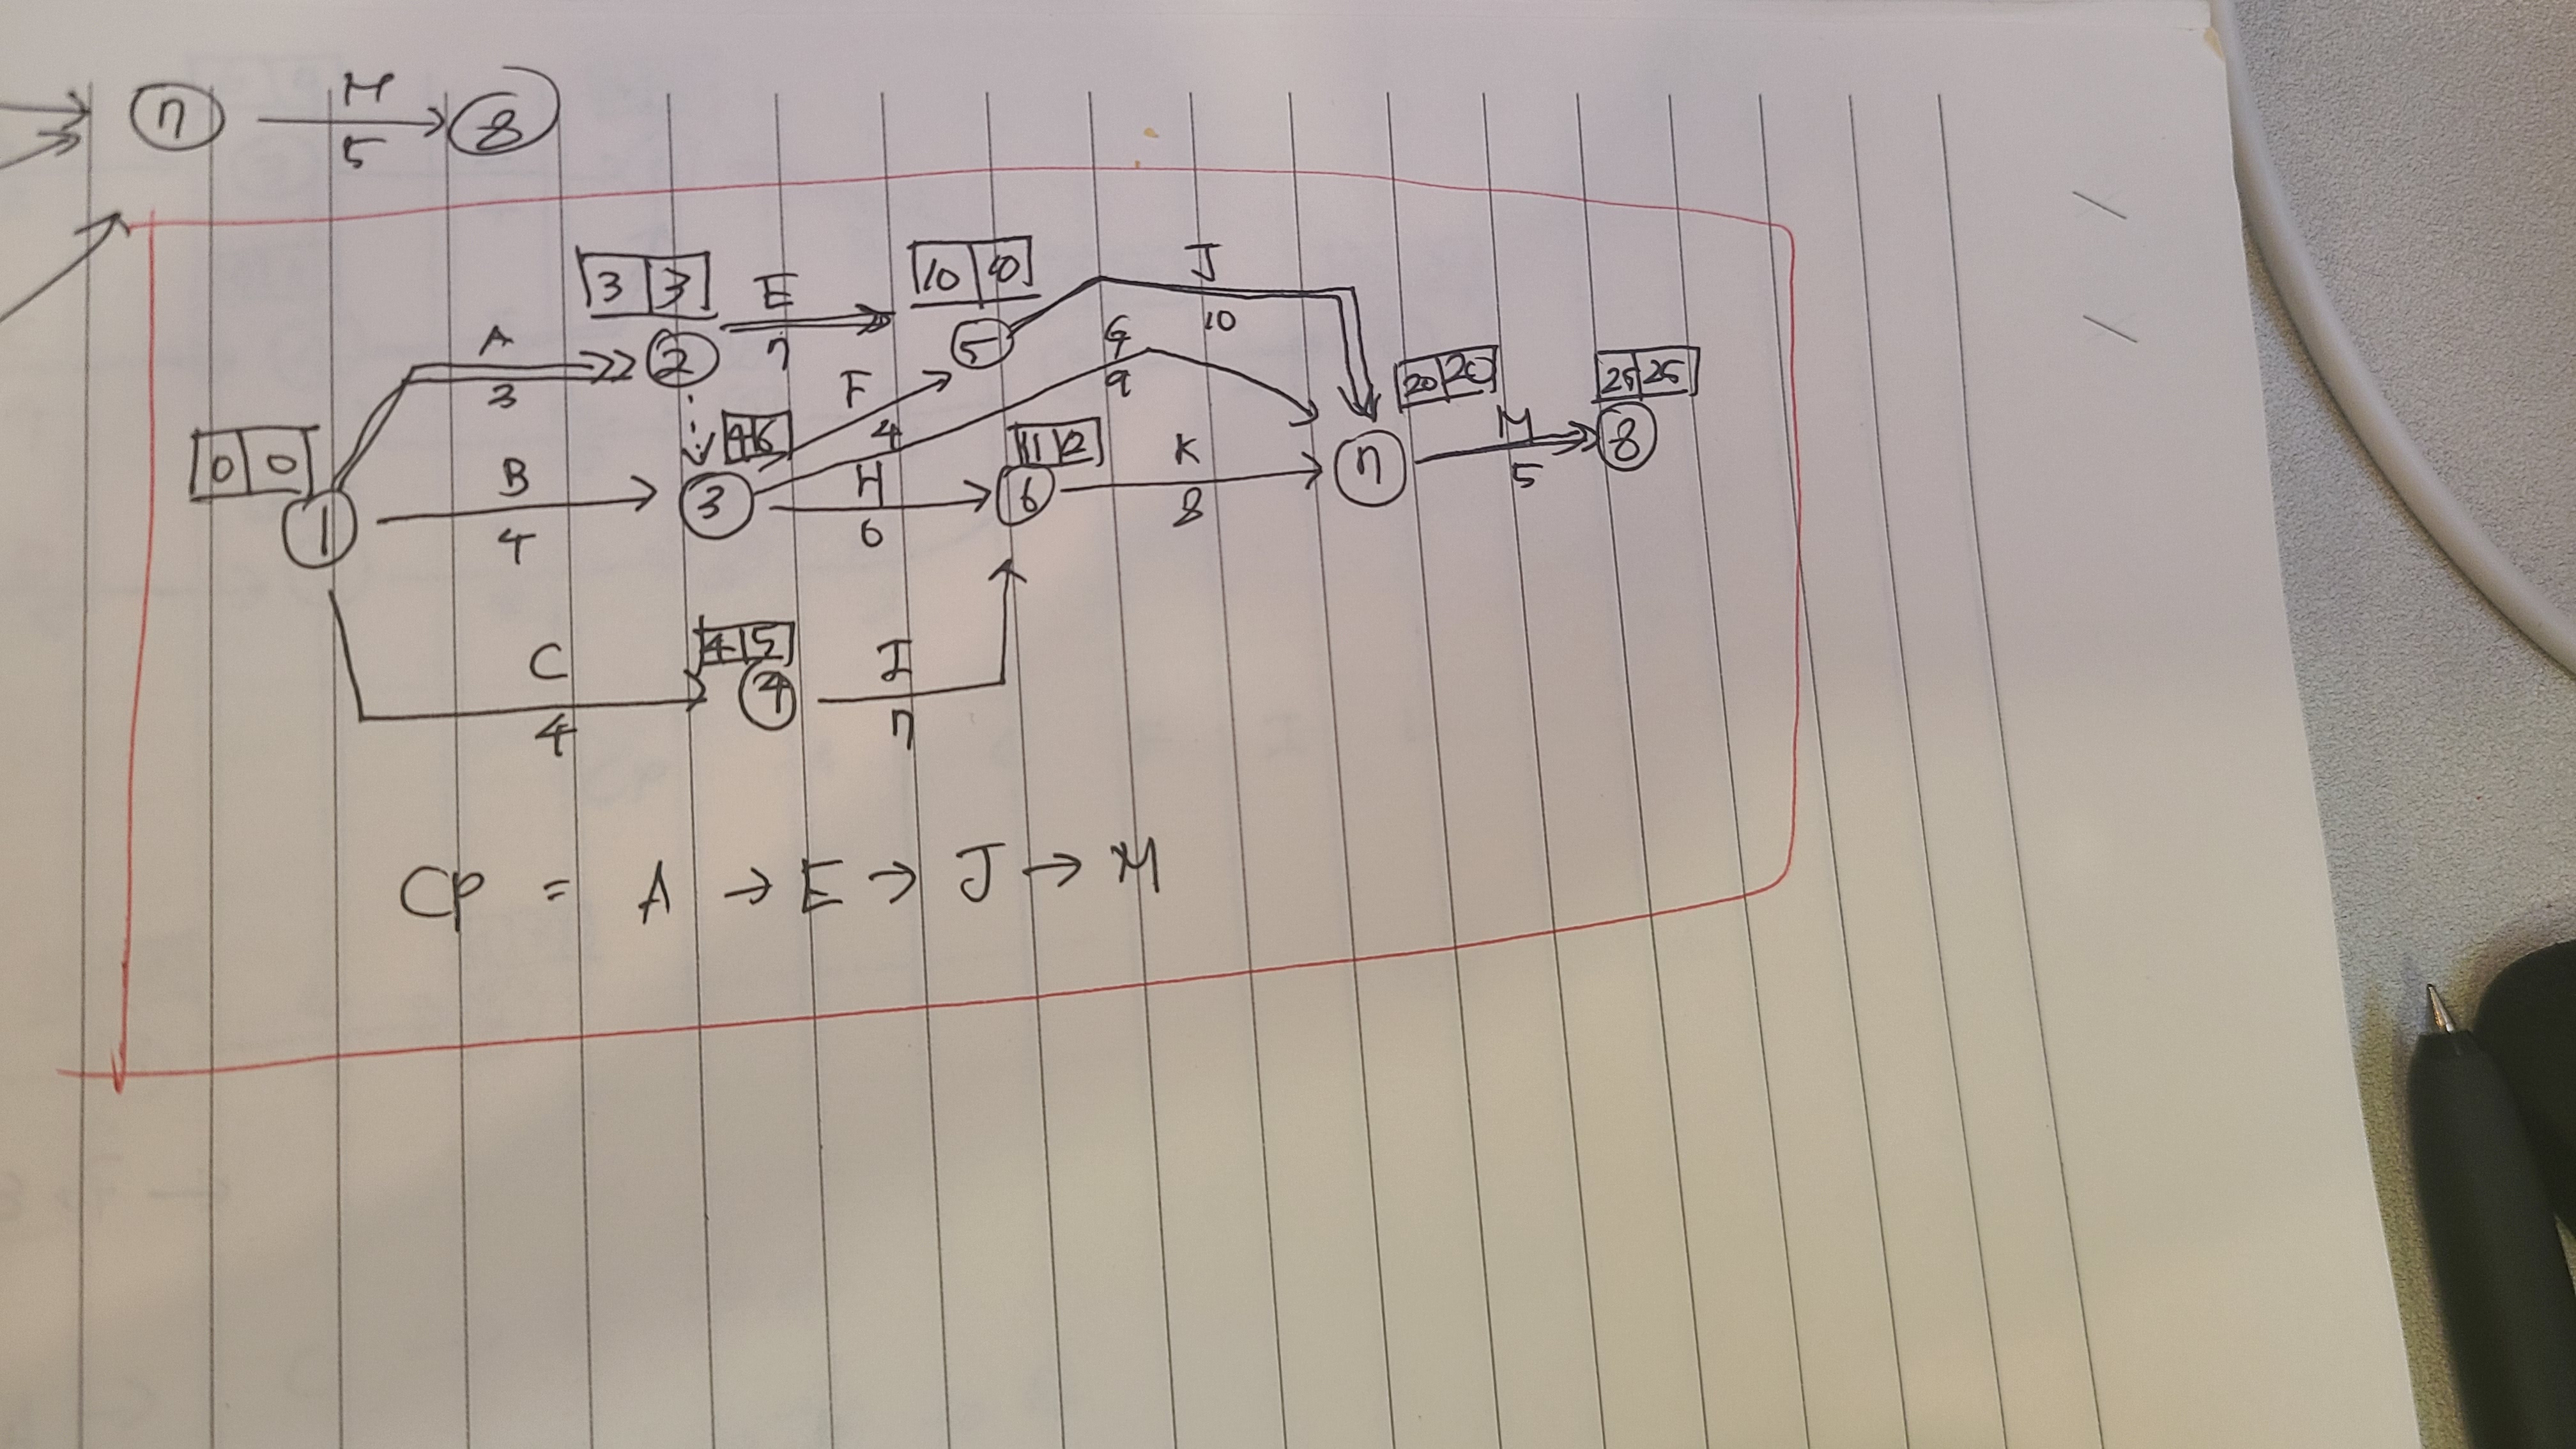 7 M 8
5
J
3 3 E 10 10
10
A 2 7 5 G
3 F 9 20 20 25 25
4 6 4 11 12 K M 8
0 0 B 3 H 6 7 5
1 4 6 8
C 4 5 I
4 4 7
CP = A → E → J → M